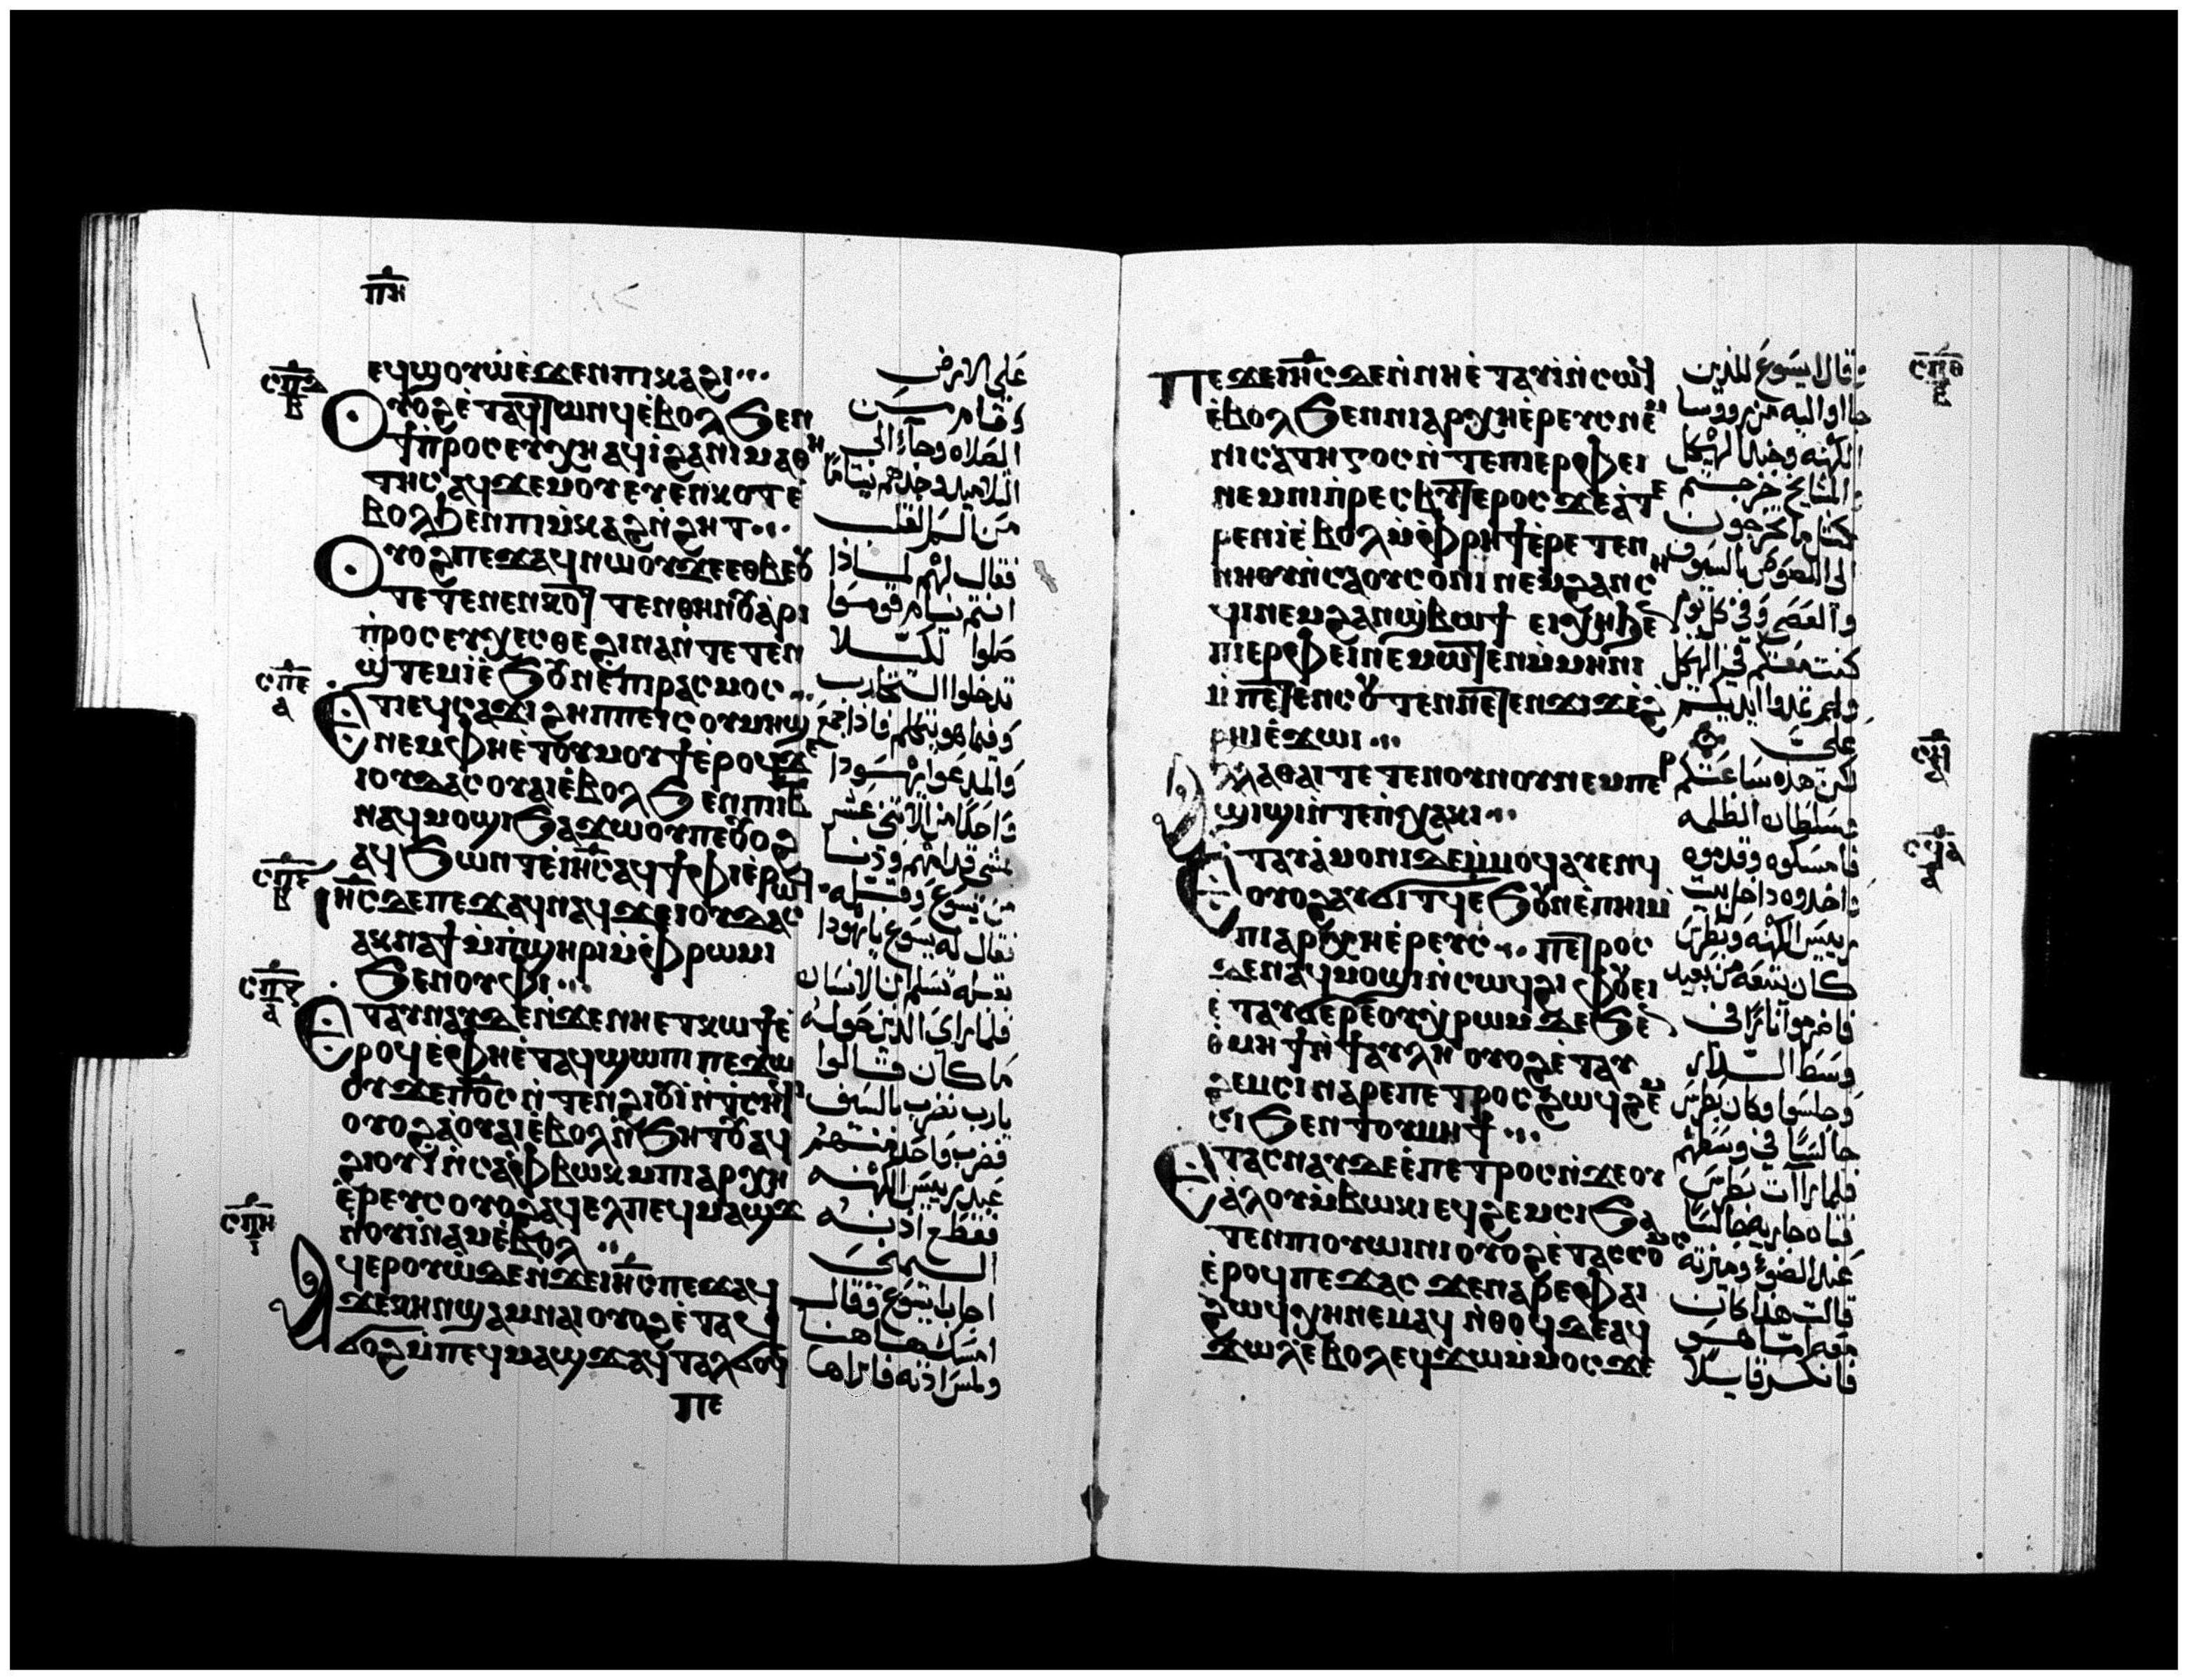 ⲡⲏ
ⲉϥϣⲟⲩⲱ̇ⲉ̇ϫⲉⲛⲡⲓⲕⲁϩⲓ
ⲟⲩⲟϩⲉ̇ⲧⲁϥⲧⲱⲛϥⲉ̇ⲃⲟⲗϧⲉⲛ
ϯⲡ̇ⲣⲟⲥⲉⲩⲭⲏⲁϥⲓ̇ϩⲁⲛⲓⲙⲁⲑⲏ
ⲧⲏⲥⲁϥϫⲉⲙⲟⲩⲉⲩⲉ̇ⲛⲕⲟⲧⲉ̇
ⲃⲟⲗϧⲉⲛⲡⲓⲙ̇ⲕⲁϩⲛ̇ϩⲏⲧ
ⲟⲩⲟϩⲡⲉϫⲁϥⲛⲱⲟⲩϫⲉⲉⲑⲃⲉⲟⲩ
ⲧⲉⲧⲉⲛⲉⲛⲕⲟⲧ ⲧⲉⲛⲑⲏⲛⲟⲩⲁ̇ⲣⲓ
ⲡ̇ⲣⲟⲥⲉⲩⲭⲉⲥⲑⲉϩⲓⲛⲁⲛ̇ⲧⲉⲧⲉⲛ
ϣ̇ⲧⲉⲙⲓ̇ⲉ̇ϧⲟⲩⲛⲉ̇ⲡⲓⲣⲁⲥⲙⲟⲥ
ⲉⲧⲓⲉϥⲥⲁϫⲓϩⲏⲡⲡⲉⲓⲥⲟⲩⲙⲏϣ
ⲛⲉⲙⲫⲏⲉ̇ⲧⲟⲩⲙⲟⲩϯⲉ̇ⲣⲟϥϫⲉ
ⲓⲟⲩⲇⲁⲥⲟⲩⲁⲓⲉ̇ⲃⲟⲗϧⲉⲛⲡⲓⲓⲃ
ⲛⲁϥⲙⲟϣⲓϧⲁϫⲱⲟⲩⲡⲉⲟⲩⲟϩ
ⲁϥϧⲱⲛⲧⲉ̇ⲓⲏⲥⲁϥϯⲫⲓⲉ̇ⲣⲱϥ
ⲓⲏⲥⲇⲉⲡⲉϫⲁϥⲛⲁϥϫⲉⲓⲟⲩⲇⲁⲥ
ⲁⲕⲛⲁϯⲙ̇ⲡ̇ϣⲏⲣⲓⲙ̇ⲫⲣⲱⲙⲓ
ϧⲉⲛⲟⲩⲫⲓ
ⲉⲧⲁⲩⲛⲁⲩⲇⲉⲛ̇ϫⲉⲛⲏⲉⲧⲕⲱϯⲉ̇
ⲣⲟϥⲉ̇ⲫⲏⲉ̇ⲧⲁϥϣⲱⲡⲓ ⲡⲉϫⲱ
ⲟⲩϫⲉⲡⲟⲥⲛ̇ⲧⲉⲛϩⲓⲟⲩⲓ̇ⲛ̇ⲧ̇ⲥⲏϥⲓ
ⲟⲩⲟϩⲁ̇ⲟⲩⲁⲓⲉ̇ⲃⲟⲗⲛ̇ϧⲏⲧⲟⲩⲁϥ
ϩⲓⲟⲩⲓ̇ⲛ̇ⲥⲁⲫⲃⲱⲕⲙⲡⲓⲁⲣⲭⲏ
ⲉ̇ⲣⲉⲩⲥⲟⲩⲟϩⲁϥⲉⲗⲡⲉϥⲙⲁϣϫ
ⲛⲟⲩⲓ̇ⲛⲁⲙⲉ̇ⲃⲟⲗ
ⲁϥⲉⲣⲟⲩⲱ̇ⲇⲉⲛ̇ϫⲉⲓⲏⲥⲡⲉϫⲁϥ
ϫⲉⲕⲏⲛϣⲁⲙⲛⲁⲓⲟⲩⲟϩⲉ̇ⲧⲁϥ
ϭⲟϩⲙ̇ⲡⲉϥⲙⲁϣϫⲁϥⲧⲁⲗϭⲟϥ
ⲡⲉ
على الارض
وقام من
الصلاه وجاء الى
التلاميذ فوجدهم نياما
من الم القلب
فقال لهم لماذا
انتم نيام قوموا
صلوا لكيلا
تدخلوا التجارب
وفيما هو يتكلم فاذا جمع
والمدعوا يهودا
واحدا من الاثنى عشر
يمشى قدامهم ودنا
من يسوع وقبله
فقال له يسوع يا يهودا
بقبله تسلم ابن الانسان
فلما راى الذين حوله
ما كان قالوا
يارب نضرب بالسيف
فضرب واحد منهم
عبد رييس الكهنه
فقطع اذنه
اليمنى
اجاب ايسوع وقال
امسكا هاهنا
ولمس اذنه فابراها
ⲡⲉϫⲉⲓⲏⲥⲇⲉⲛ̇ⲛⲏⲉ̇ⲧⲁⲩⲓ̇ⲛ̇ⲥⲱϥ
ⲉ̇ⲃⲟⲗϧⲉⲛⲛⲓⲁⲣⲭⲏⲉ̇ⲣⲉⲩⲥⲛⲉⲙ
ⲛⲓⲥⲁⲧⲏⲅⲟⲥⲛ̇ⲧⲉⲡⲓⲉⲣⲫⲉⲓ
ⲛⲉⲙⲛⲓⲡ̇ⲣⲉⲥⲃⲩⲧⲉⲣⲟⲥϫⲉⲁ̇ⲧⲉ
ⲧⲉⲛⲓ̇ⲉ̇ⲃⲟⲗⲙ̇ⲫⲣⲏϯⲉ̇ⲣⲉⲧⲉⲛ
ⲛⲏⲟⲩⲛ̇ⲥⲁⲟⲩⲥⲟⲛⲓⲛⲉⲙϩⲁⲛⲥⲏ
ϥⲓⲛⲉⲙϩⲁⲛϣ̇ⲃⲱϯ ⲉⲓⲭⲏϧⲉⲛ
ⲡⲓⲉⲣⲫⲉⲓⲛⲉⲙⲱⲧⲉⲛⲙ̇ⲙⲏⲛⲓ
ⲙ̇ⲡⲉⲧⲉⲛⲥⲟⲩⲧⲉⲛⲛⲉⲧⲉⲛϫⲓϫⲉ̇ϩ
ⲣⲏⲓⲉ̇ϫⲱⲓ
ⲁⲗⲗⲁⲑⲁⲓⲧⲉⲧⲉⲛⲟⲩⲛⲟⲩⲛⲉⲙⲡⲉⲣ
ϣⲓϣⲓⲛ̇ⲧⲉⲡ̇ⲭⲁⲕⲓ
ⲉⲧⲁⲩⲁ̇ⲙⲟⲛⲓⲇⲉⲙ̇ⲙⲟϥⲁⲩⲉⲛϥ
ⲟⲩⲟϩⲁⲩϭⲓⲧϥⲉϧⲟⲩⲛⲉ̇ⲡⲏⲓⲙ
ⲡⲓⲁⲣⲭⲏⲉ̇ⲣⲉⲩⲥ ⲡⲉⲧⲣⲟⲥ
ⲇⲉⲛⲁϥⲙⲟϣⲓⲛ̇ⲥⲱϥϩⲓ ⲫⲟⲩⲉⲓ
ⲉ̇ⲧⲁⲩϭⲉⲣⲉ̇ⲟⲩⲭⲣⲱⲙ ⲇⲉϧⲉⲛ
ⲑⲙⲏϯⲛ̇ϯⲁⲩⲗⲏ ⲟⲩⲟϩⲉ̇ⲧⲁⲩ
ϩⲉⲙⲥⲓⲛⲁⲣⲉⲡⲉⲧⲣⲟⲥϩⲱϥϩⲉⲙ
ⲥⲓϧⲉⲛⲧⲟⲩⲙⲏϯ
ⲉⲧⲁⲥⲛⲁⲩⲇⲉⲉ̇ⲡⲉⲧⲣⲟⲥⲛ̇ϫⲉⲟⲩ
ⲁ̇ⲗⲟⲩⲙ̇ⲃⲱⲕⲓⲉϥϩⲉⲙⲥⲓϧⲁ
ⲧⲉⲛⲡⲓⲟⲩⲱⲓⲛⲓⲟⲩⲟϩⲉ̇ⲧⲁⲥⲥⲟⲙⲥ
ⲉ̇ⲣⲟϥⲡⲉϫⲁⲥ ϫⲉⲛⲁⲣⲉⲫⲁⲓ
ϩⲱϥⲭⲏⲛⲉⲙⲁϥ ⲛ̇ⲑⲟϥⲇⲉⲁϥ
ϫⲱⲗⲉ̇ⲃⲟⲗⲉϥϫⲱⲙ̇ⲙⲟⲥϫⲉ
وقال ايسوع للذين
جااوا اليه من رووسا
الكهنه وجند الهيكل
والمشايخ خرجتم
كمثل ما تخرجون
الى اللصوص بالسيوف
والعصى وفى كل يوم
كنت معكم فى الهيكل
ولم تمدوا ايديكم
على
لكن هذه ساعتكم
وسلطان الظلمه
فامسكوه وقدموه
وادخلوه داخل بيت
رييس الكهنه وبطرس
كان يتبعه من بعيد
فاضرموا نارا فى
وسط الدار
وجلسوا وكان بطرس
جالسا فى وسطهم
فلما راآت بطرس
فتاه جاريه جالسا
عند الضوء وميزته
قالت هذا كان
معه اما هو
فانكر قايلا